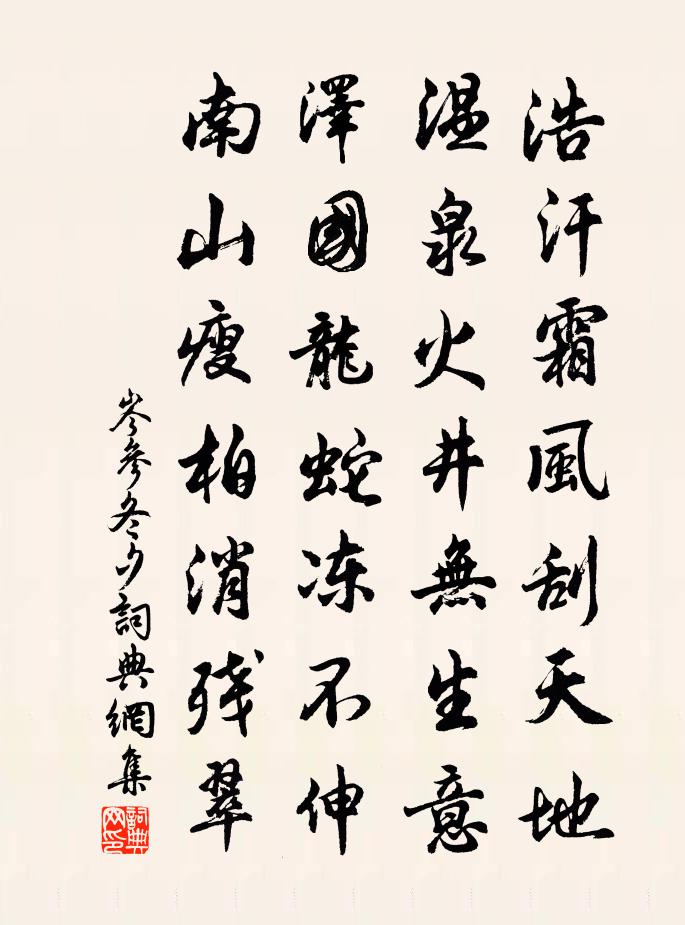 浩汗霜風刮天地
温泉火井無生意
澤國龍蛇冻不伸
南山瘦柏消残翠
岑參冬夕詞典網集
詞典网印